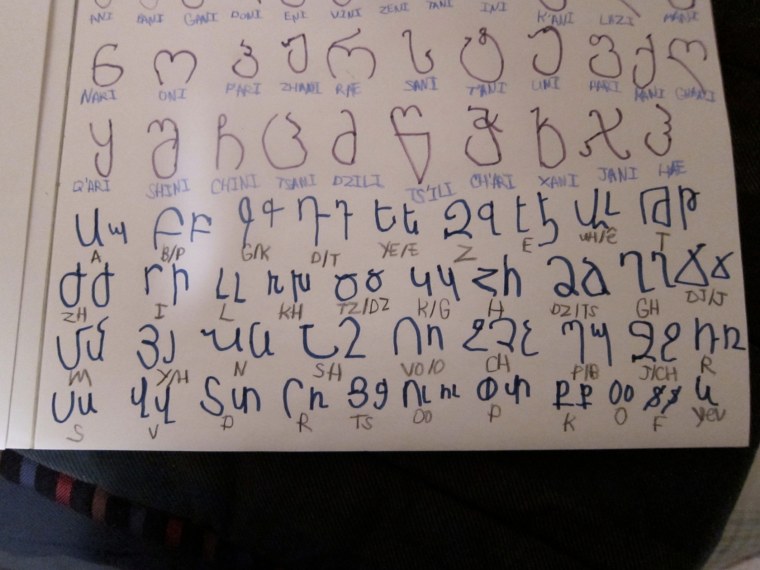 ANI BANI GANI DONI ENI VINI ZENI TANI INI K'ANI LAZI
ნ ო პ ჟ რ ს ტ უ ფ ქ ღ
NARI ONI P'ARI ZHANI RAE SANI T'ANI UNI PARI KANI GHANI
ყ შ ჩ ც ძ წ ჭ ხ ჯ ჰ
Q'ARI SHINI CHINI TSANI DZILI TS'ILI CH'ARI XANI JANI HAE
Աա Բբ Գգ Դդ Եե Զզ Էէ Ըը Թթ
A B/P G/K D/T YE/E Z E T
Ժժ Իի Լլ Խխ Ծծ Կկ Հհ Ձձ Ղղ Ճճ
ZH I L KH TZ/DZ K/G H DZ/TS GH DJ/J
Մմ Յյ Նն Շշ Ոո Չչ Պպ Ջջ Ռռ
M Y/H N SH VO/O CH P/B J/CH R
Սս Վվ Տտ Րր Ցց Ուու Փփ Քք Օօ Ֆֆ և
S V D R TS OO P K O F yev